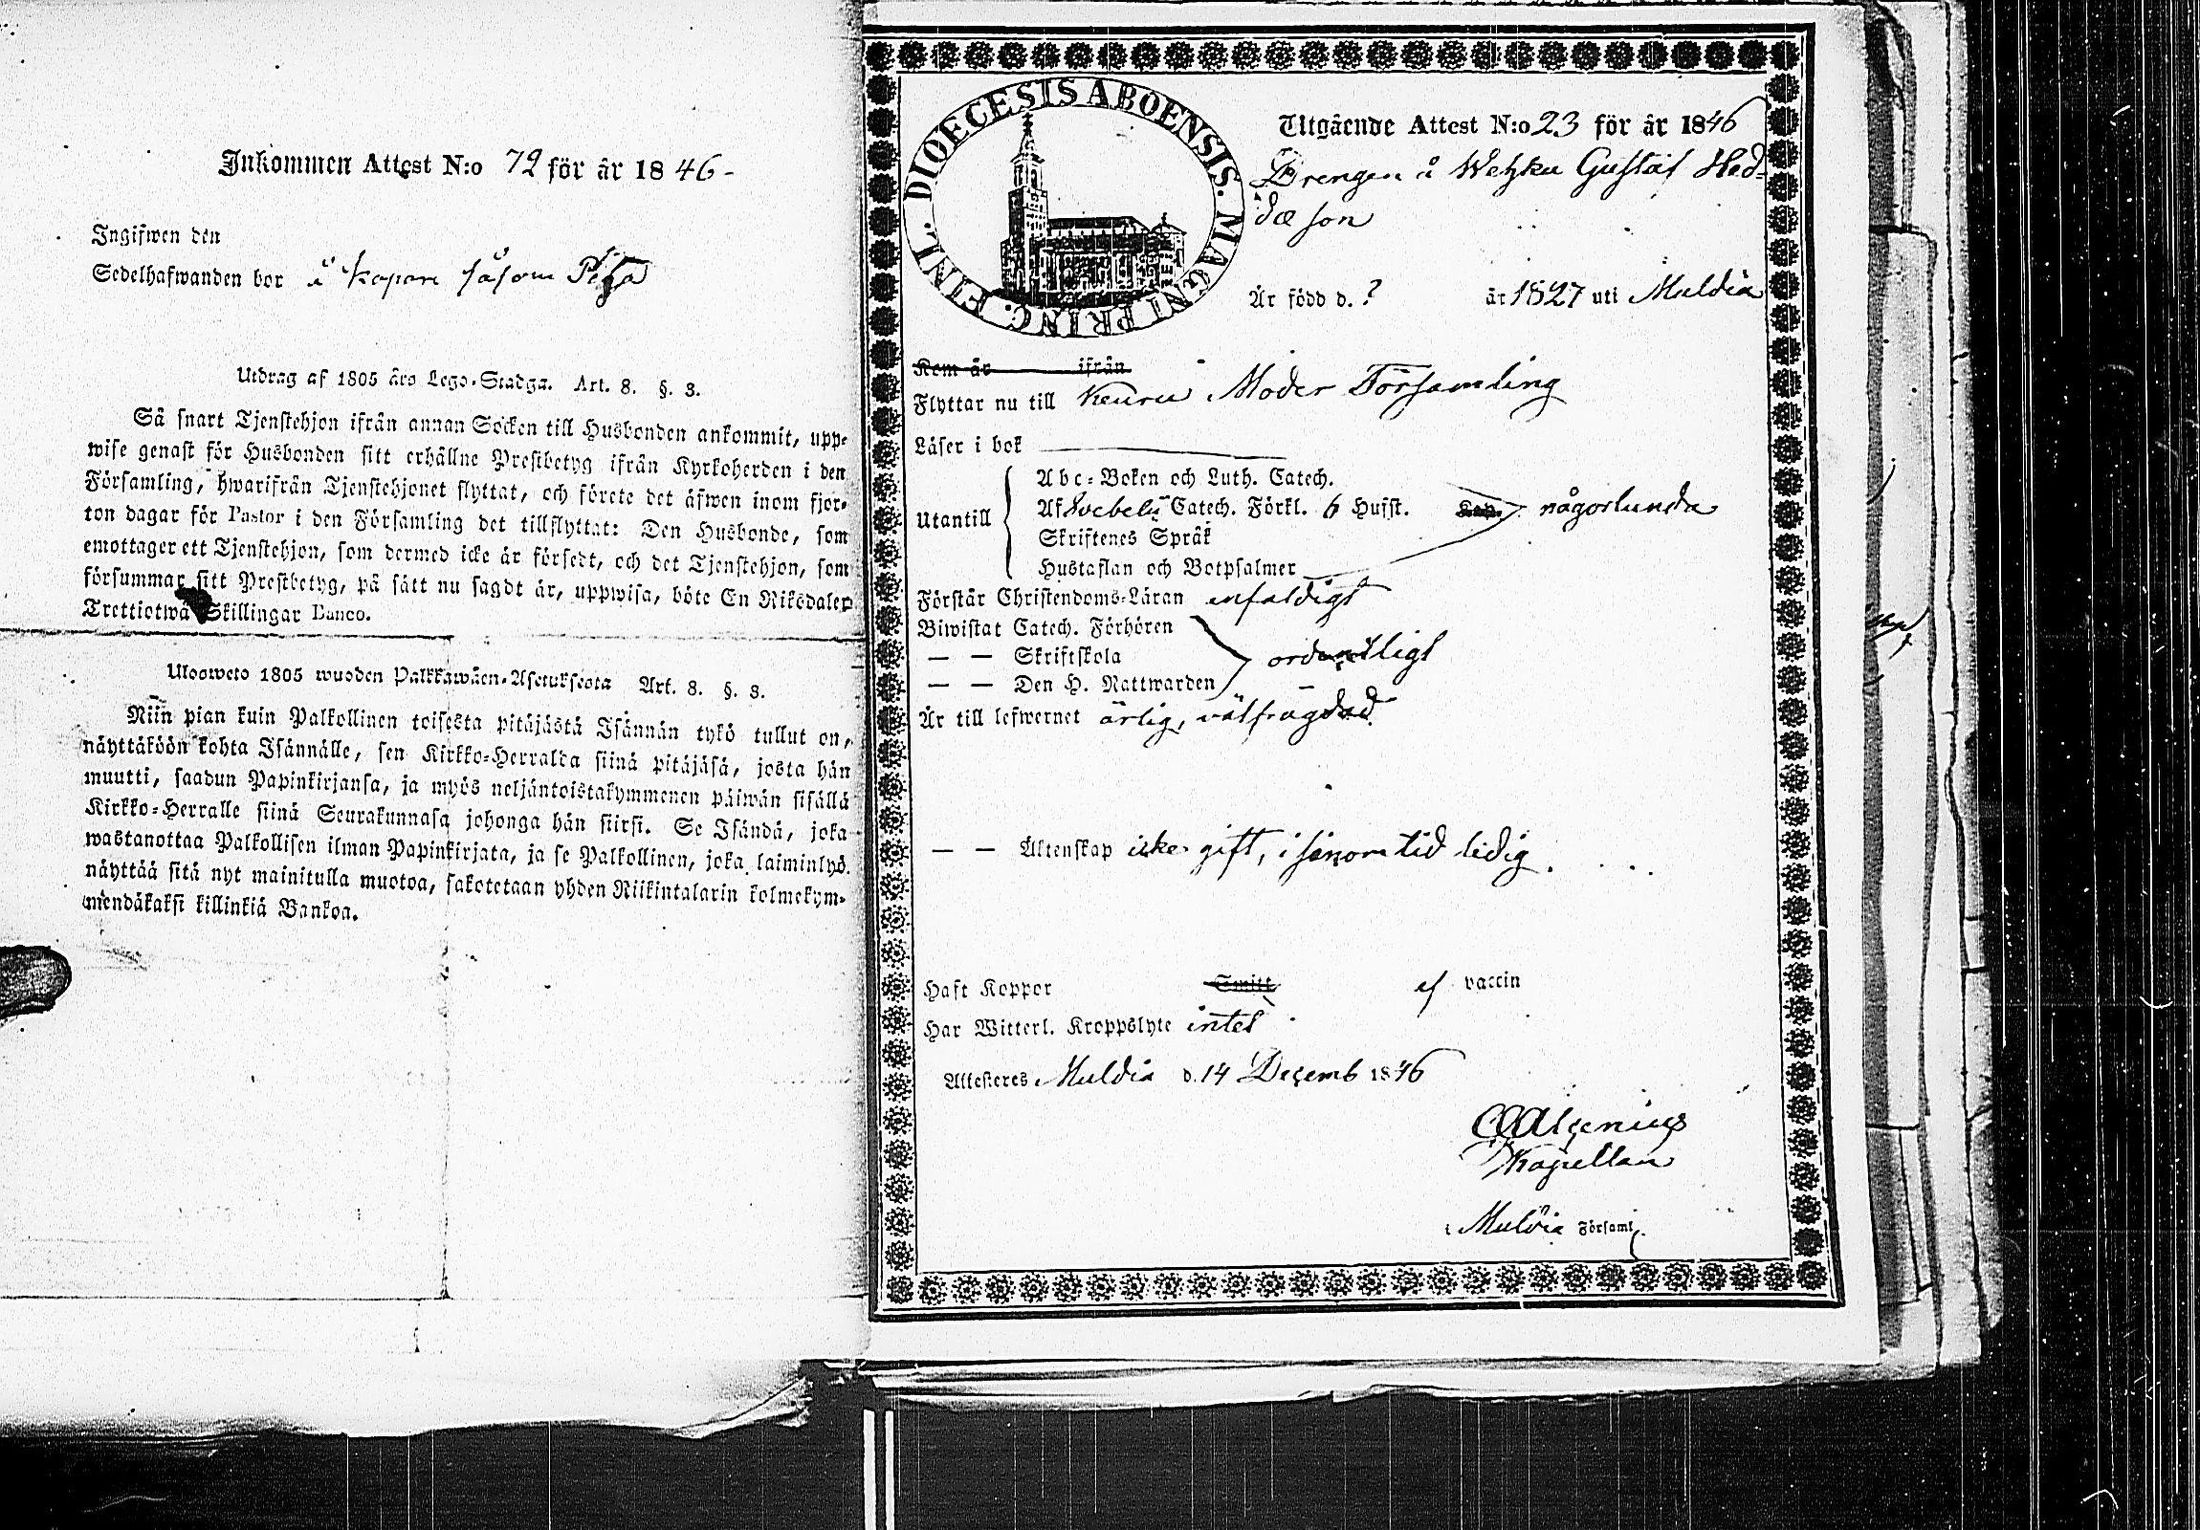 Inkommen Attest N:o 72 för år 1846-
Ingifwen den
Sedelhafwanden bor i Kopare såsom Piga
Utdrag af 1805 års Lego-Stadga. Art. 8. §. 3.
Så snart Tjenstehjon ifrån annan Socken till Husbonden ankommit, upp-
wise genast för Husbonden sitt erhållne Prestbetyg ifrån Kyrkoherden i den
Församling, hwarifrån Tjenstehjonet flyttat, och förete det äfwen inom fjor-
ton dagar för Pastor i den Församling det tillflyttat: Den Husbonde, som
emottager ett Tjenstehjon, som dermed icke är försedt, och det Tjenstehjon, som
försummar sitt Prestbetyg, på sätt nu sagdt är, uppwisa, böte En Riksdaler
Trettiotwå Skillingar Banco.
Uloosweto 1805 wuoden Palkkawäen-Asetuksesta Art. 8. §. 3.
Niin pian kuin Palkollinen toisesta pitäjästä Isännän tykö tullut on,
näyttäköön kohta Isännälle, sen Kirkko-Herralda siinä pitäjäsä, josta hän
muutti, saadun Papinkirjansa, ja myös neljäntoistakymmenen päiwän sisällä
Kirkko-Herralle siinä Seurakunnasa johonga hän siirsi. Se Isändä, joka
wastanottaa Palkollisen ilman Papinkirjata, ja se Palkollinen, joka laiminlyö
näyttää sitä nyt mainitulla muotoa, sakotetaan yhden Riikintalarin kolmekym-
mendäkaksi killinkiä Bankoa.
DIOECESIS ABOENSIS. MAGNI PRINC. FINL.
Utgående Attest N:o 23 för år 1846
Drengen å Wehku Gustaf Hed-
dæ son
Är född d. ? år 1827 uti Muldia
Kom år ifrån
Flyttar nu till Keuru Moder Församling
Läser i bok
Abc-Boken och Luth. Catech.
Utantill Af Svebelii Catech. Förkl. 6 Hufst. Kap. någorlunda
Skriftenes Språk
Hustaflan och Botpsalmer
Förstår Christendoms-Läran enfaldigt
Biwistat Catech. Förhören
— — Skriftskola ordentligt
— — Den H. Nattwarden
Är till lefwernet ärlig, välfrägdad
— — Äktenskap icke gift, i senare tid ledig.
Haft Koppor Smitt ef vaccin
Har Witterl. Kroppslyte intet
Attesteres Muldia d. 14 Decemb 1846
Kapellan
i Muldia Församl.